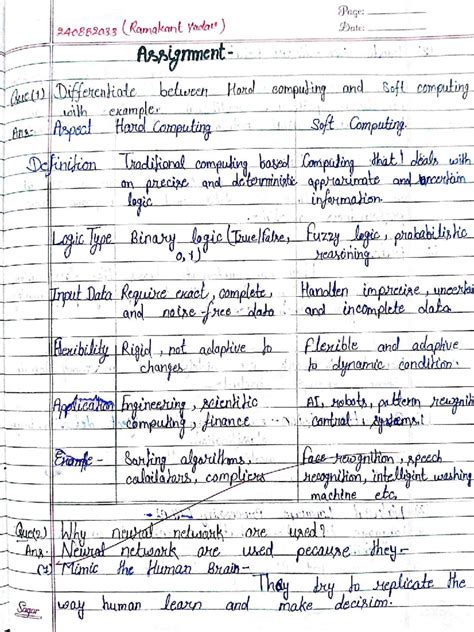 Page:
Date:
240882033 (Ramakant Yadav)
Assignment-
Que(1) Differentiate between Hard computing and Soft computing
with example.
Ans:- Aspect Hard Computing Soft Computing.
Definition Traditional computing based Computing that deals with
on precise and deterministic approximate and uncertain
logic information.
Logic Type Binary logic (True/False, Fuzzy logic, probabilistic
0,1) reasoning.
Input Data Require exact, complete, Handlen imprecise, uncertai
and noise-free data and incomplete data.
Flexibility Rigid, not adaptive to Flexible and adaptive
changes to dynamic condition.
Application Engineering, scientific AI, robots, pattern recognition
computing, finance control systems.
Example- Sorting algorithms, Face recognition, speech
calculators, compliers recognition, intelligint washing
machine etc,
Que(2) Why neural network are used?
Ans- Neural network are used pecause they-
(1) Mimic the Human Brain-
They try to replicate the
way human learn and make decision.
Sagar